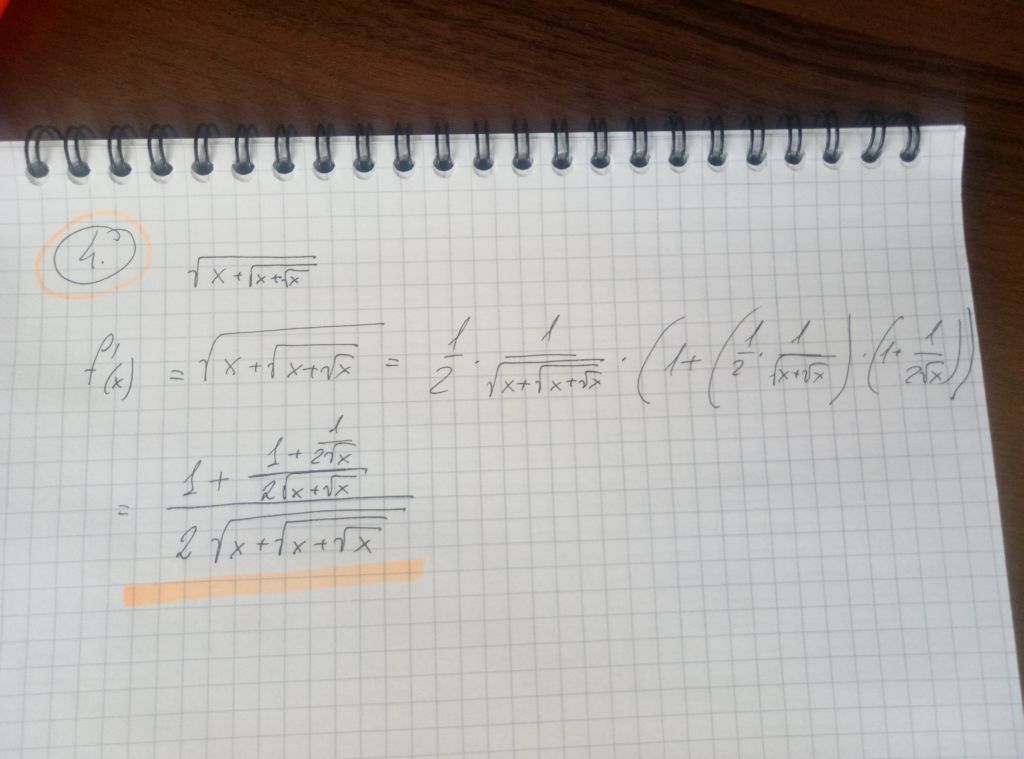 4.
√(x+√(x+√x))
f'(x) = √(x+√(x+√x)) = 1/2 · 1/√(x+√(x+√x)) · (1+(1/2 · 1/√(x+√x)) · (1+ 1/(2√x)))
= (1 + (1 + 1/(2√x))/(2√(x+√x)))/(2√(x+√(x+√x)))